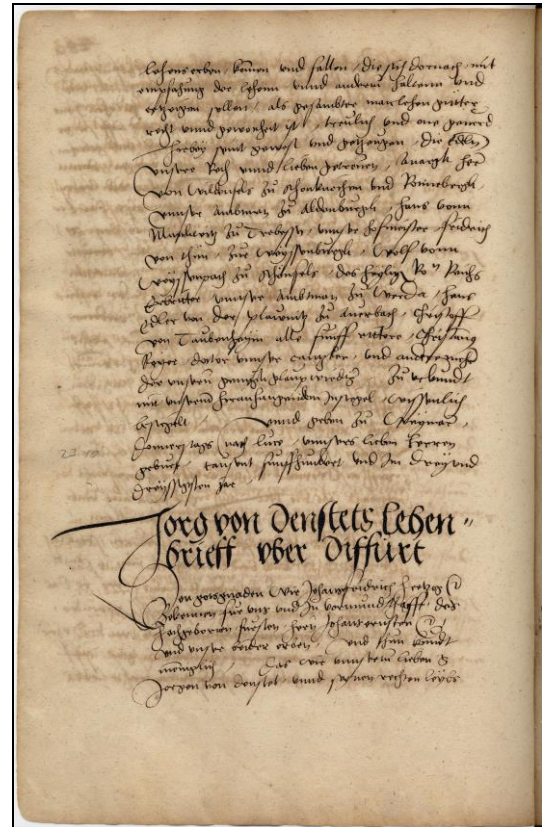 lehens erben, komen vnd fallen, die sich dornach, mit
empfahung der lehenn vnnd andrem halttenn vnd
ertzeigen sollen, als gesambter manlehen gutter
recht vnnd gewonheit ist, treulich vnd one geuerd
Hierbey seint gewest vnd getzeugen, die Edlen
vnsere Reth vnnd lieben getreuen, Anargk her
von Wildenfels zu schonkirchen vnd Ronnebergk,
vnnser ambtman zu Aldenburgk, hans vonn
zu Trebessen, vnnser hofmeister, fridrich
von thun, zur Weyssenburgk, Wolf vonn
Weyssenpach zu schonfels, des heyligen Ro Reichs
Erbritter vnnser Ambtman zu Weyda, hans
Edler von der plawnitz zu Auerbach, Christoff
von Taubenheym alle funff rittere, Christiang
Beyer doctor vnnser Cantzler, vnd ander
der vnsern gnugk glaubwirdig zu vrkundt
mit vnserm hieranhangendem Insigel, wissenlich
besigelt, vnnd geben zu Weymar,
Donnerstags nach luce, vnnsers lieben herren
geburt, tausent funffhundert vnd Im drey vnd
dreyssigsten jar
Jorg von Denstets Lehen"
brieff vber Diffurt
Von gots gnaden Wir Johansfridrich hertzog
Bekennen fur vns vnd In vormundschafft des
hochgebornen fursten hern Johans ernsten
vnd vnser beider erben, vnd thun kundt
meniglich, Das wir vnnserm lieben g
Jorgen von denstet, vnnd seinen rechten leybs